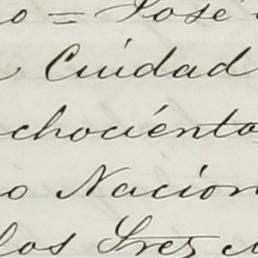 o = José
Cuidad
chociénto
o Nacion
los Sres